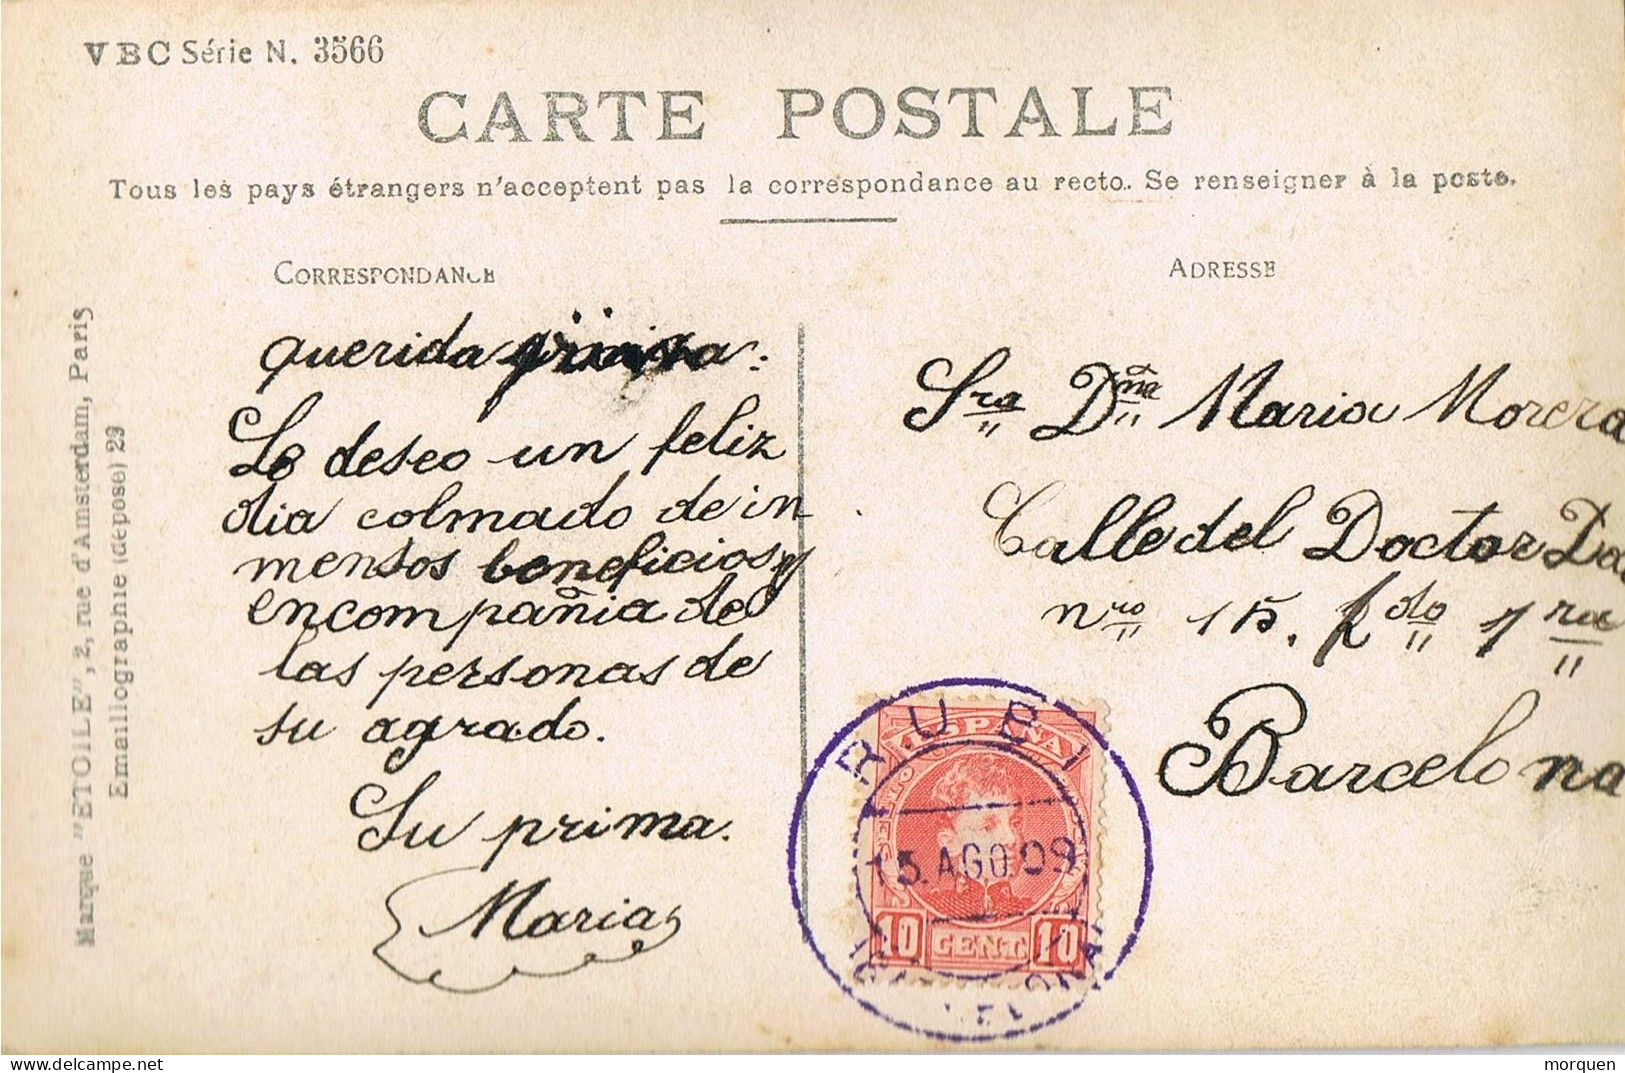 VBC Série N. 3566
CARTE POSTALE
Tous les pays étrangers n'acceptent pas la correspondance au recto. Se renseigner à la poste.
CORRESPONDANCE
ADRESSE
Marque "ETOILE", 2, rue d'Amsterdam, Paris
Emaillographie (déposé) 29
querida prima:
Le deseo un feliz
dia colmado de in
mensos beneficios y
en compañia de
las personas de
su agrado.
Su prima.
Maria
Sra Dña Maria Morera
Calle del Doctor
nro 15. 2do 1ra
Barcelona
ESPAÑA
10 CENT. 10
RUBI
15.AGO.09
BARCELONA
morquen